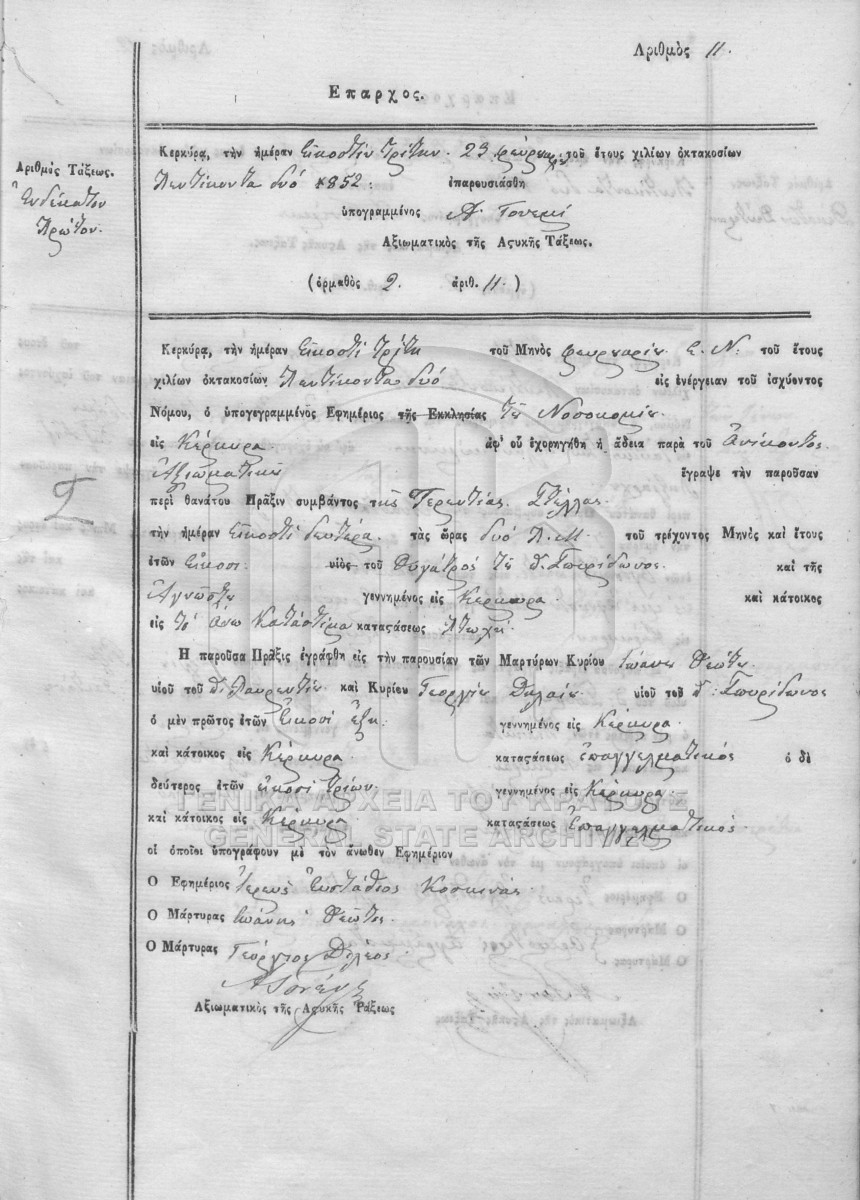 Αριθμὸς 11.
Επαρχος.
Αριθμὸς Τάξεως.
Ἑνδέκατον
Πρῶτον.
Κερκύρᾳ, τὴν ἡμέραν Εἰκοστὴν τρίτην. 23 φευρουαρ: τοῦ ἔτους χιλίων ὀκτακοσίων
πεντήκοντα δυό 1852: ἐπαρουσιάσθη
ὑπογραμμένος Α.
Αξιωματικὸς τῆς Αςυκῆς Τάξεως.
(ὁρμαθὸς 2. ἀριθ. 11.)
Κερκύρᾳ, τὴν ἡμέραν Εἰκοστὶ τρίτη τοῦ Μηνὸς φευρουαρίου Ε. Ν: τοῦ ἔτους
χιλίων ὀκτακοσίων πεντήκοντα δυό εἰς ἐνέργειαν τοῦ ἰσχύοντος
Νόμου, ὁ ὑπογεγραμμένος Εφημέριος τῆς Εκκλησίας τοῦ Νοσοκομίου
εἰς Κέρκυρα. ἀφ' οὗ ἐχορηγήθη ἡ ἄδεια παρὰ τοῦ Ἀνίκοντος
Ἀξιωματικοῦ ἔγραψε τὴν παροῦσαν
περὶ θανάτου Πράξιν συμβάντος τῆς Τερεντίας Στέλλας.
τὴν ἡμέραν Εἰκοστὶ δευτέρα. τὰς ὥρας δυό Π. Μ. τοῦ τρέχοντος Μηνὸς καὶ ἔτους
ἐτῶν Εἴκοσι. υἱὸς τοῦ θυγατρὸς τοῦ δ. Σπυρίδωνος. καὶ τῆς
Ἀγνώστου γεννημένος εἰς Κέρκυρα. καὶ κάτοικος
εἰς τὸ ἄνω Κατάστιμα καταςάσεως πτωχὴ.
Η παροῦσα Πράξις ἐγράφθη εἰς τὴν παρουσίαν τῶν Μαρτύρων Κυρίου Ἰωάνου Θεώτου
υἱοῦ τοῦ δ: Λαυρεντίου καὶ Κυρίου Γεοργίου υἱοῦ τοῦ δ: Σπυρίδωνος
ὁ μὲν πρῶτος ἐτῶν Εἴκοσι ἕξη: γεννημένος εἰς Κέρκυρα.
καὶ κάτοικος εἰς Κέρκυρα. καταςάσεως ἐπαγγελματικός ὁ δὲ
δεύτερος ἐτῶν εἴκοσι τριῶν. γεννημένος εἰς Κέρκυρα.
καὶ κάτοικος εἰς Κέρκυρα. καταςάσεως ἐπαγγελματικός.
οἱ ὁποῖοι ὑπογράφουν μὲ τὸν ἄνωθεν Εφημέριον
Ο Εφημέριος ἱερεὺς Εὐστάθιος Κοσκινάς
Ο Μάρτυρας Ἰωάνης Θεώτος.
Ο Μάρτυρας Γεόργιος
Αξιωματικὸς τῆς Αςυκῆς Τάξεως
ΓΕΝΙΚΑ ΑΡΧΕΙΑ ΤΟΥ ΚΡΑΤΟΥΣ
GENERAL STATE ARCHIVES